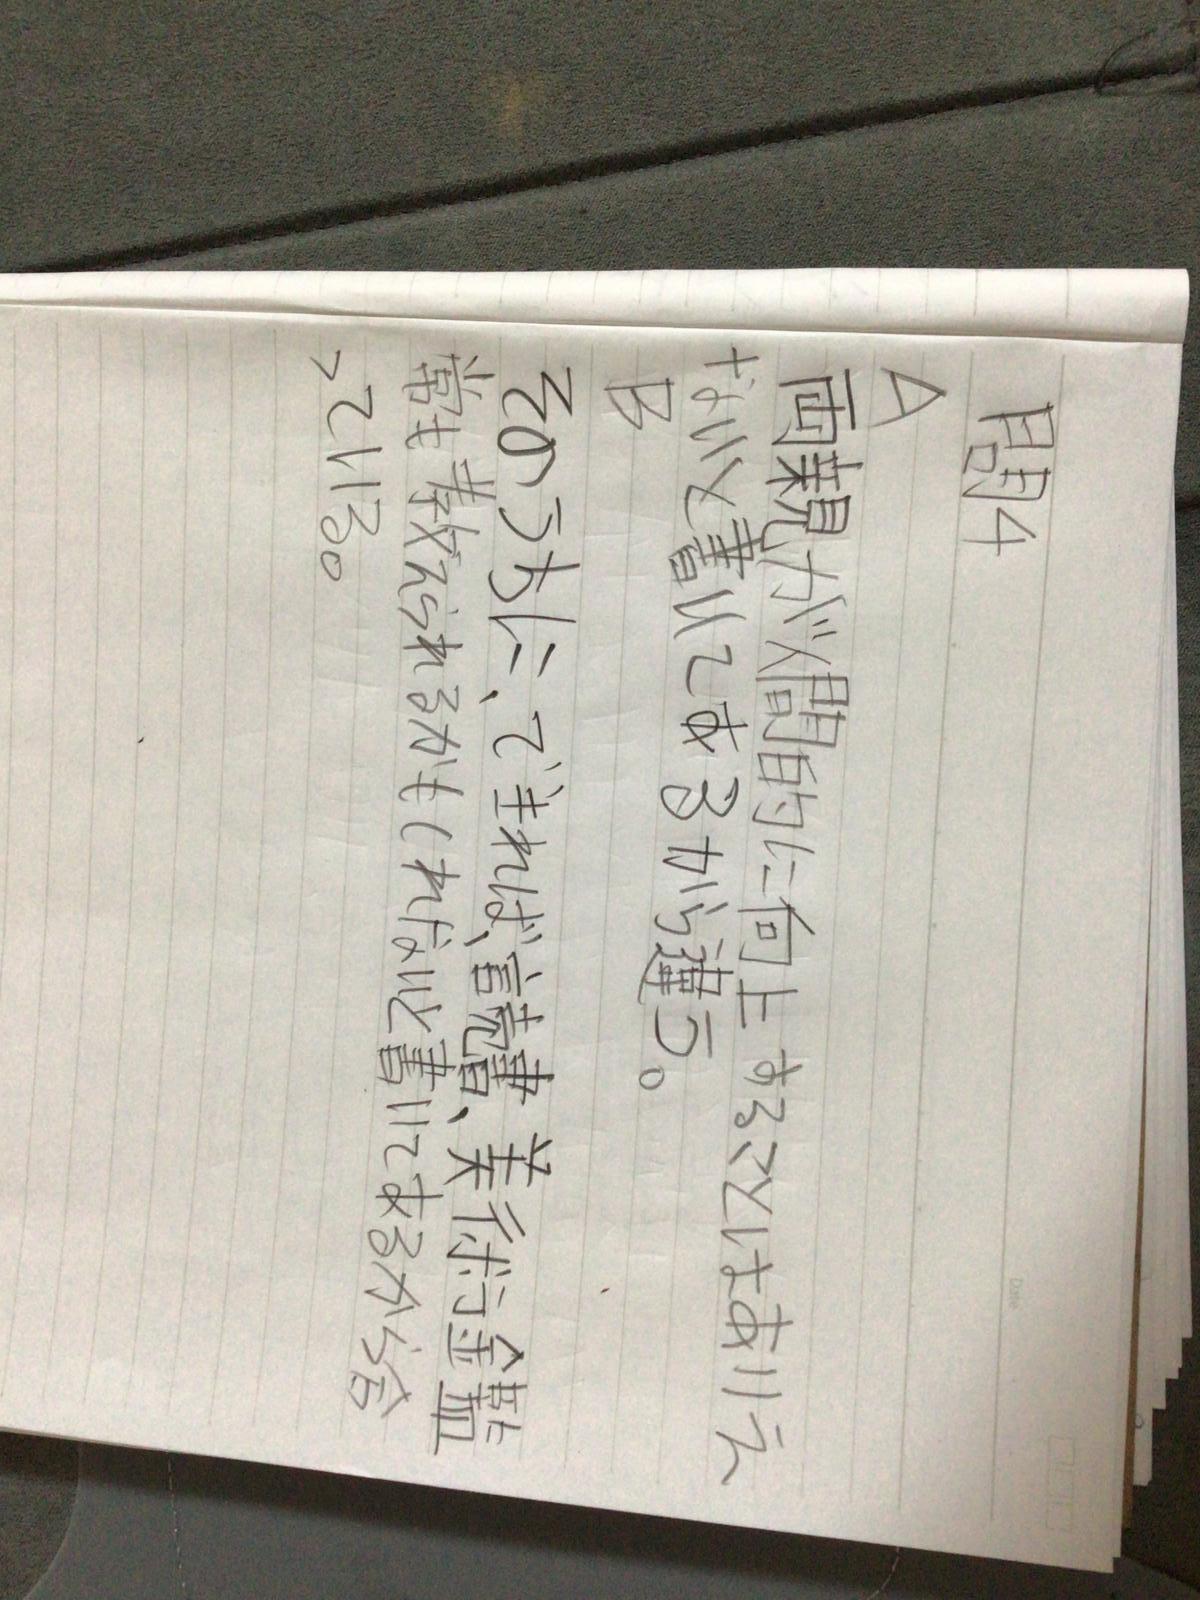 問4
A
両親が人間的に向上することはありえ
ないと書いてあるから違う。
B
そのうちに、できれば、読書、美術鑑
賞も教えられるかもしれないと書いてあるから合
っている。
Date